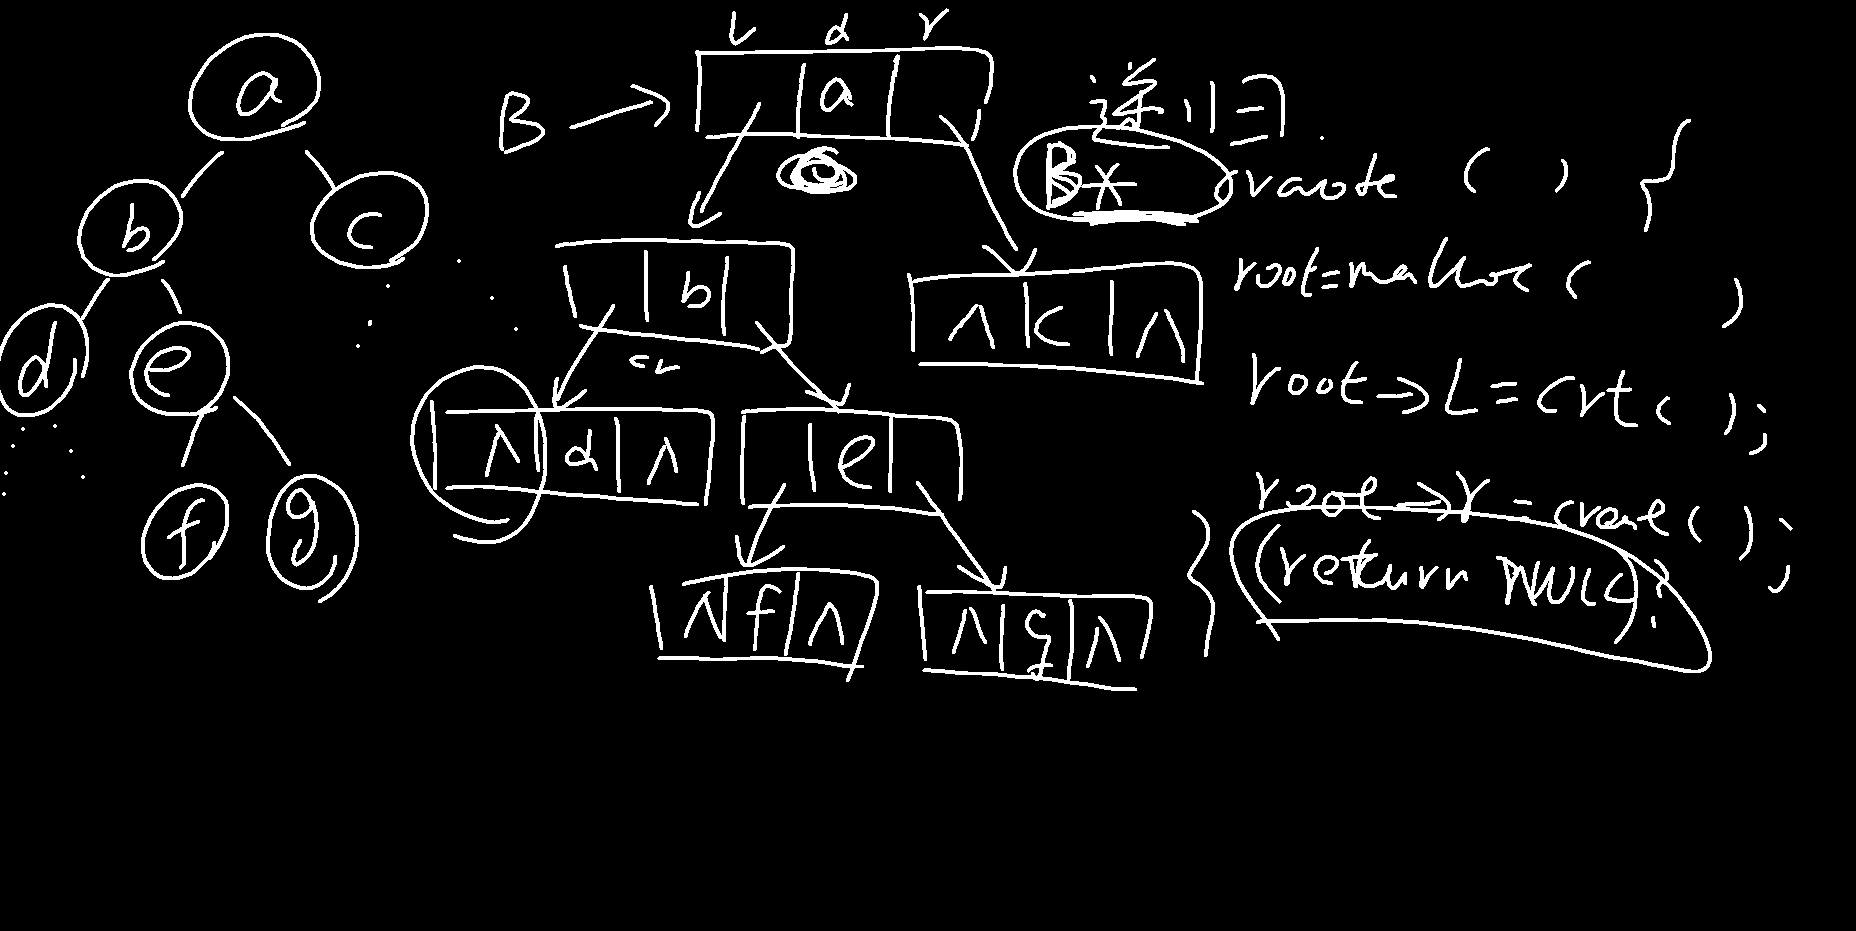 a
b c
d e
f g
L d r
B → a
b
∧ c ∧
∧ d ∧
e
∧ f ∧
∧ g ∧
递归
B* create ( ) {
root=malloc ( )
root→L=crt( );
root→r=create( );
(return NULL);
}